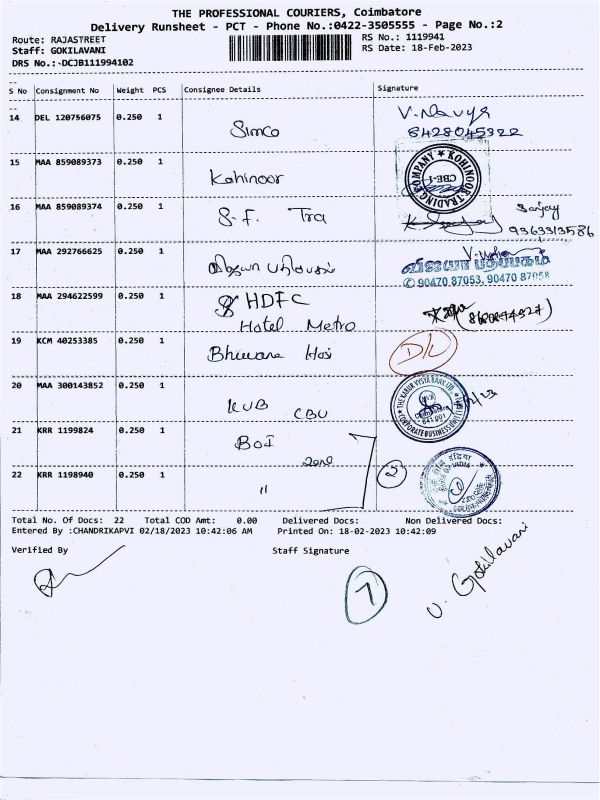 THE PROFESSIONAL COURIERS, Coimbatore
Delivery Runsheet - PCT - Phone No.:0422-3505555 - Page No.:2
Route: RAJASTREET
RS No.: 1119941
Staff: GOKILAVANI
RS Date: 18-Feb-2023
DRS No.:-DCJB111994102
S No Consignment No Weight PCS Consignee Details Signature
14 DEL 120756075 0.250 1 Simco V.Navya
8428045322
15 MAA 859089373 0.250 1 Kohinoor KOHINOOR TRADING COMPANY CBE-1
16 MAA 859089374 0.250 1 S.F. Tra Sanjay
9363313586
17 MAA 292766625 0.250 1 விஜயா பதிப்பகம் விஜயா பதிப்பகம்
✆ 90470 87053, 90470 87058
18 MAA 294622599 0.250 1 HDFC
Hotel Metro
19 KCM 40253385 0.250 1 Bhuvana Hosi D/L
20 MAA 300143852 0.250 1 KVB CBU THE KARUR VYSYA BANK LTD. CORPORATE BUSINESS UNIT 641 001
21 KRR 1199824 0.250 1 BOI
Zone
22 KRR 1198940 0.250 1 "
Total No. Of Docs: 22 Total COD Amt: 0.00 Delivered Docs: Non Delivered Docs:
Entered By :CHANDRIKAPVI 02/18/2023 10:42:06 AM Printed On: 18-02-2023 10:42:09
Verified By Staff Signature
7
V. Gokilavani